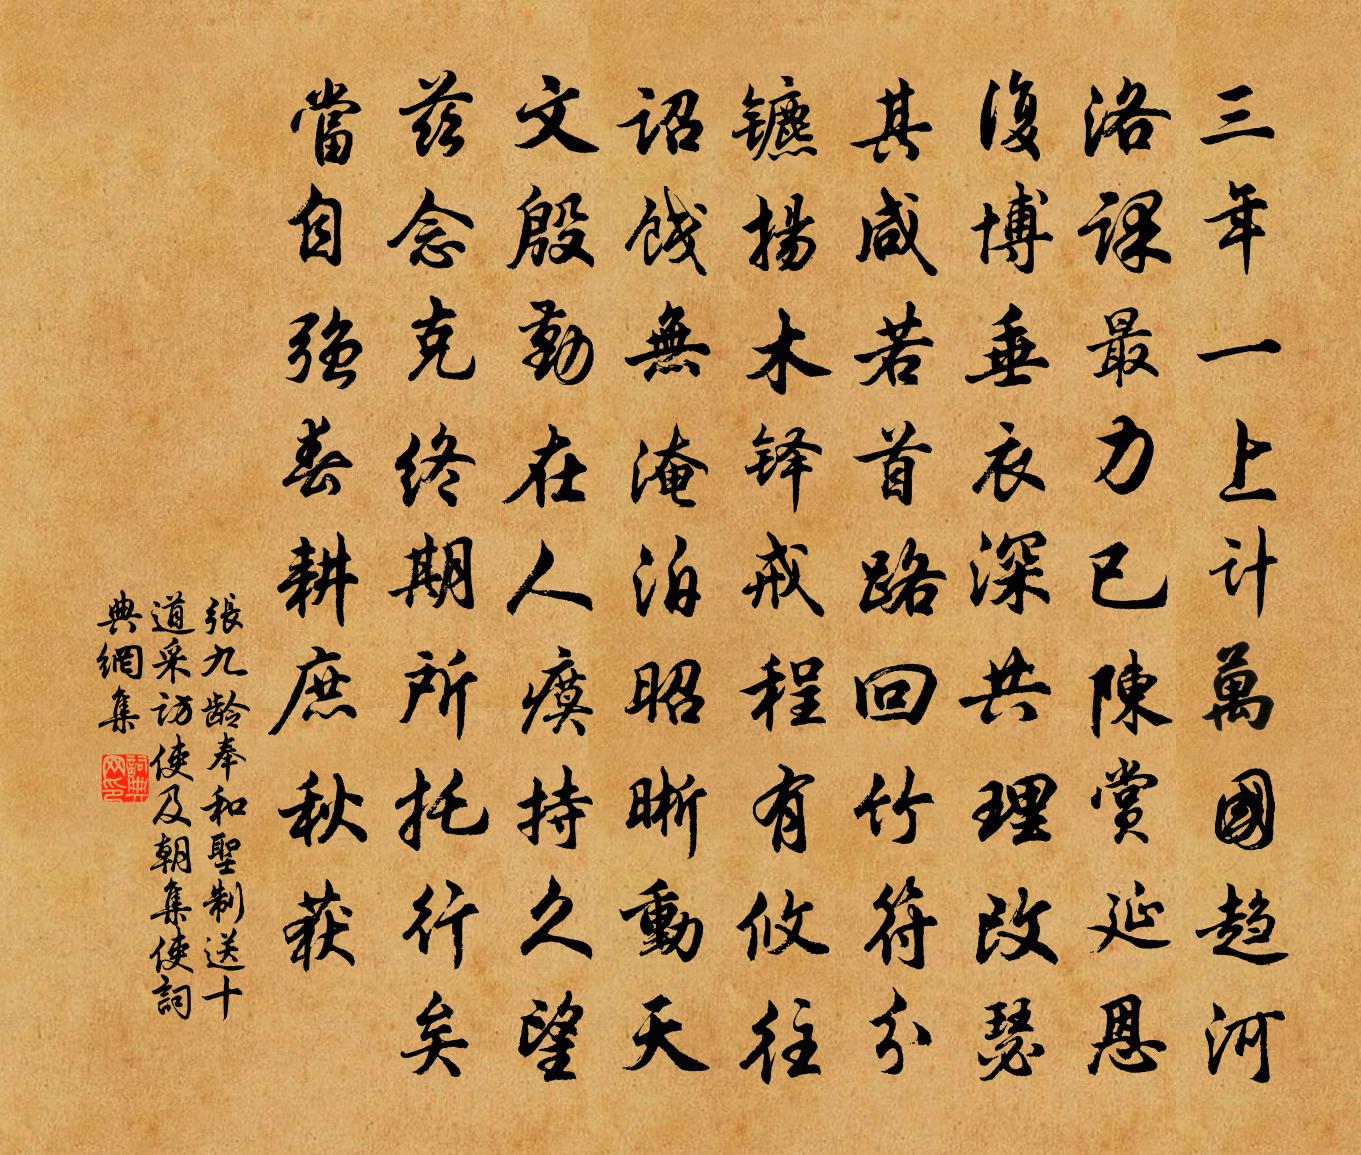 三年一上计萬國趋河
洛课最力已陳赏延恩
復博垂衣深共理改瑟
其咸若首路回竹符分
镳揚木铎戒程有攸往
诏饯無淹泊昭晰動天
文殷勤在人瘼持久望
兹念克终期所托行矣
當自强春耕庶秋获
張九龄奉和聖制送十
道采访使及朝集使詞
典網集
詞典网印